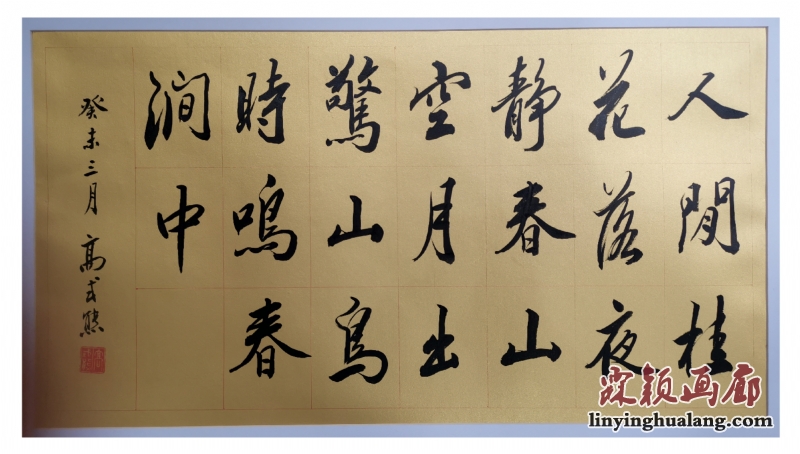 人閒桂
花落夜
静春山
空月出
驚山鳥
時鳴春
澗中
癸未三月 高式熊
霖颖画廊
linyinghualang.com